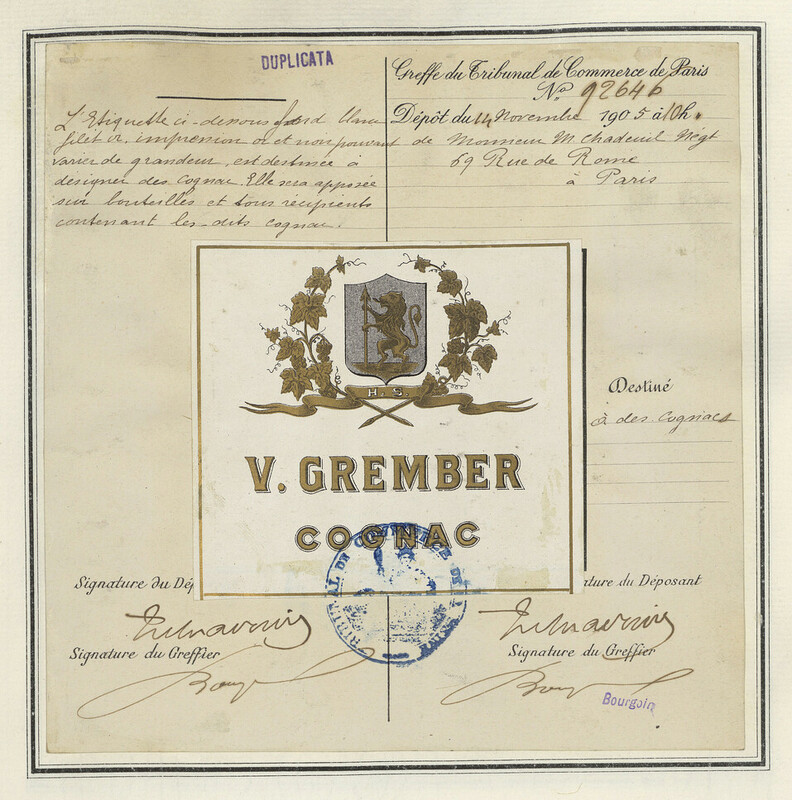 DUPLICATA
L'Etiquette ci-dessous fond blanc
filet or, impression or et non pouvant
varier de grandeur, est destinée à
désigner des Cognac. Elle sera apposée
sur bouteilles et tous récipients
contenant les dits Cognac.
Greffe du Tribunal de Commerce de Paris
No 92646
Dépôt du 14 Novembre 1905 à 10h.
de Monsieur M. Chadeuil Négt
69 Rue de Rome
à Paris
H. S.
V. GREMBER
COGNAC
Destiné
à des Cognacs
TRIBUNAL DE COMMERCE DE LA SEINE
Signature du Dép
ature du Déposant
Signature du Greffier
Signature du Greffier
Bourgoin